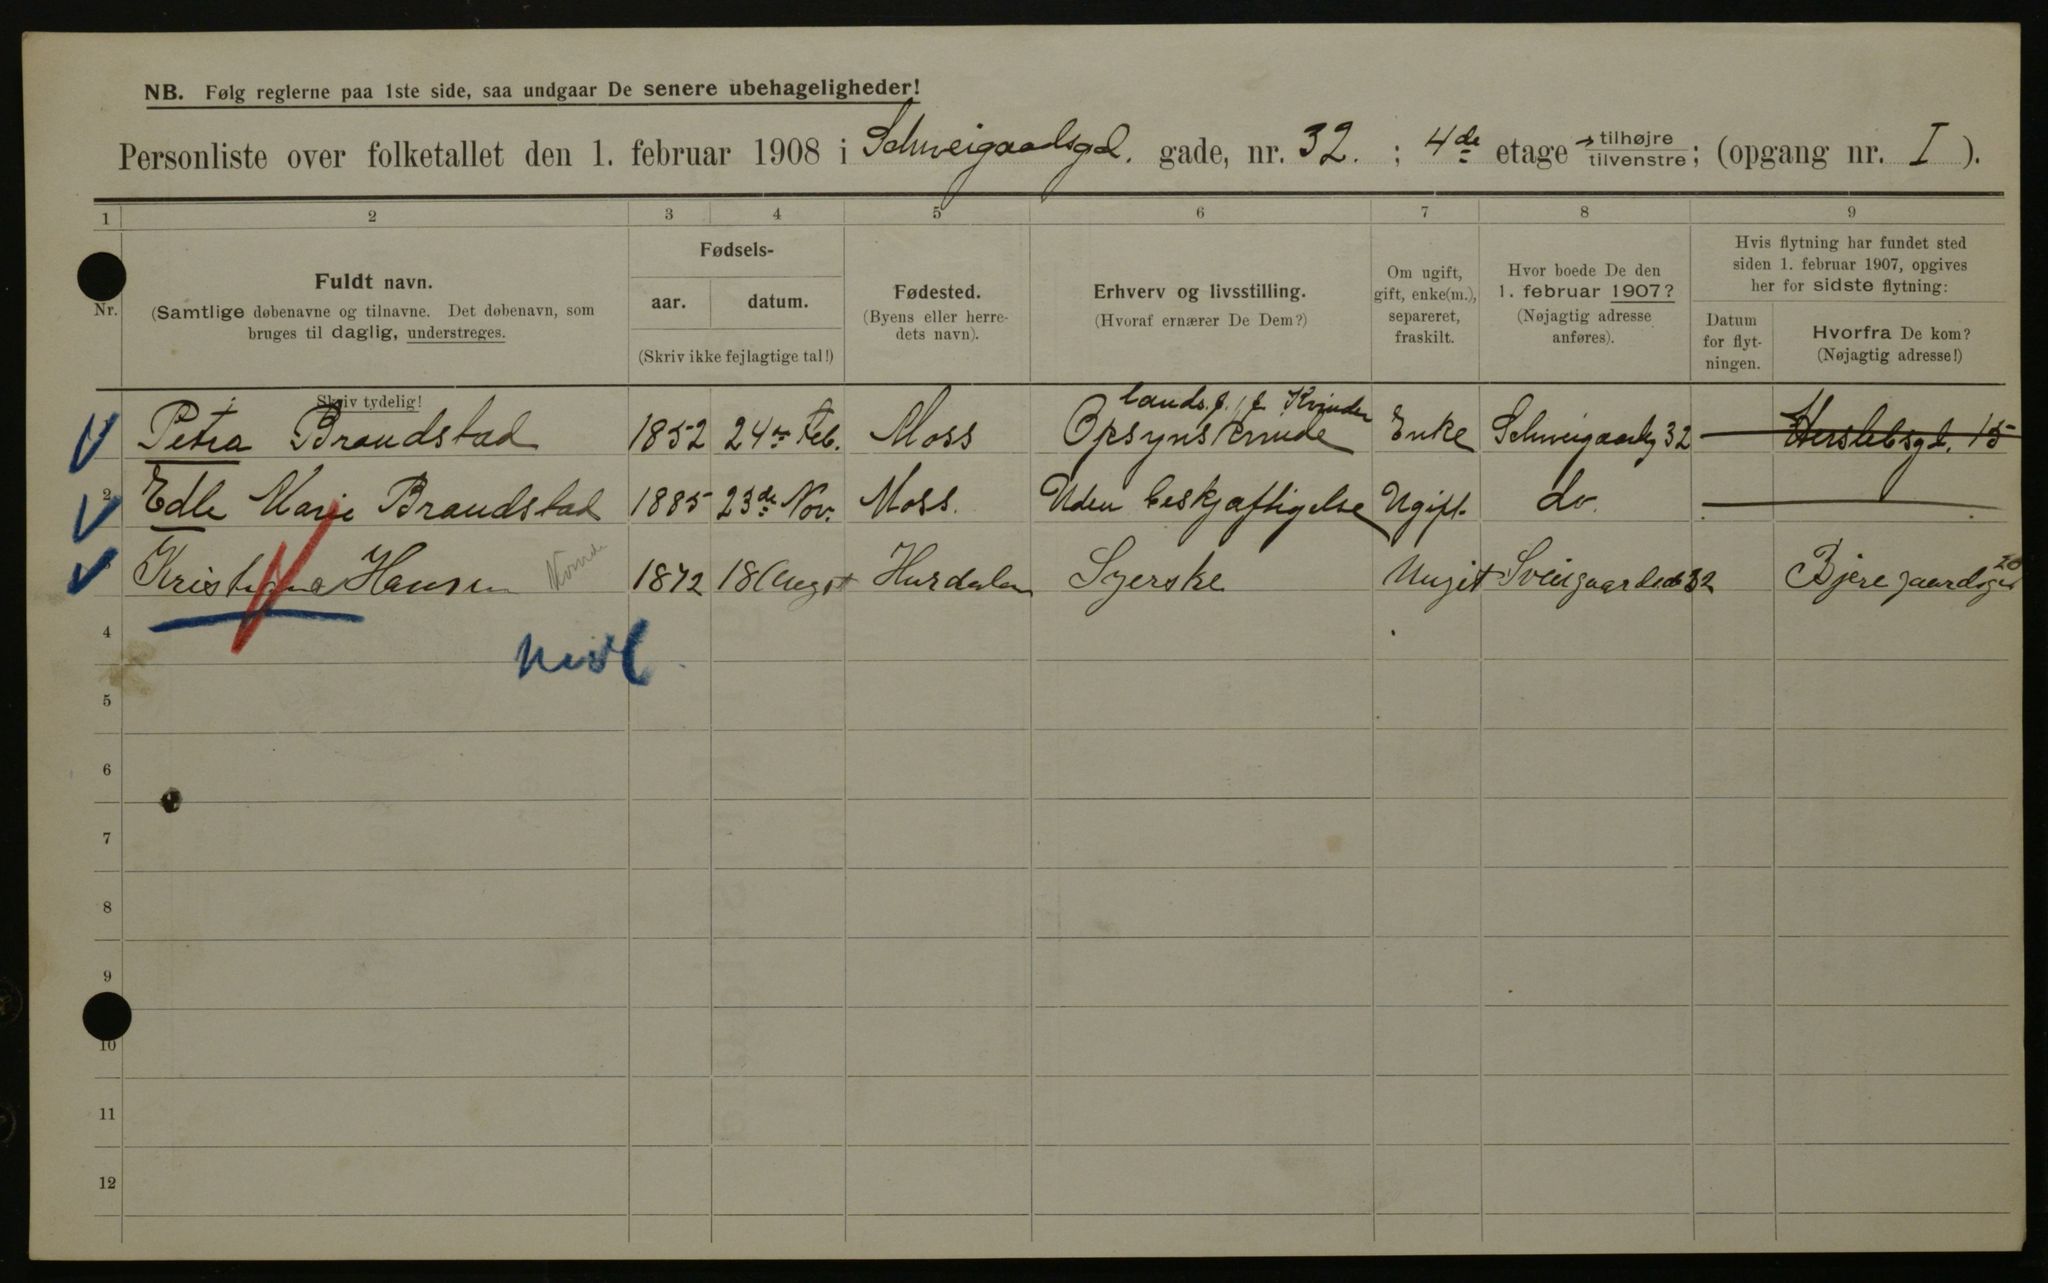 NB. Følg reglerne paa 1ste side, saa undgaar De senere ubehageligheder!
Personliste over folketallet den 1. februar 1908 i Schweigaardsgd. gade, nr. 32. ; 4de etage tilhøjre tilvenstre; (opgang nr. I ).
1 2 3 4 5 6 7 8 9
Nr.
Fuldt navn.
(Samtlige døbenavne og tilnavne. Det døbenavn, som
bruges til daglig, understreges.
Skriv tydelig!
Fødsels-
aar. datum.
(Skriv ikke fejlagtige tal!)
Fødested.
(Byens eller herre-
dets navn).
Erhverv og livsstilling.
(Hvoraf ernærer De Dem?)
Om ugift,
gift, enke(m.),
separeret,
fraskilt.
Hvor boede De den
1. februar 1907?
(Nøjagtig adresse
anføres).
Hvis flytning har fundet sted
siden 1. februar 1907, opgives
her for sidste flytning:
Datum
for flyt-
ningen.
Hvorfra De kom?
(Nøjagtig adresse!)
Lands.f. f. Kvinder
Petra Brandstad 1852 24de Feb. Moss Opsynskvinde Enke Schweigaardsg 32 Herslebsgd. 15
2 Edle Marie Brandstad 1885 23de Nov. Moss. Uden beskjæftigelse Ugift. do.
Kristiana Hansen 1872 18 August Hurdalen Syerske Ungit Sveigaardsd 32 Bjeregaardsgd 20
4
5
6
7
8
9
10
11
12